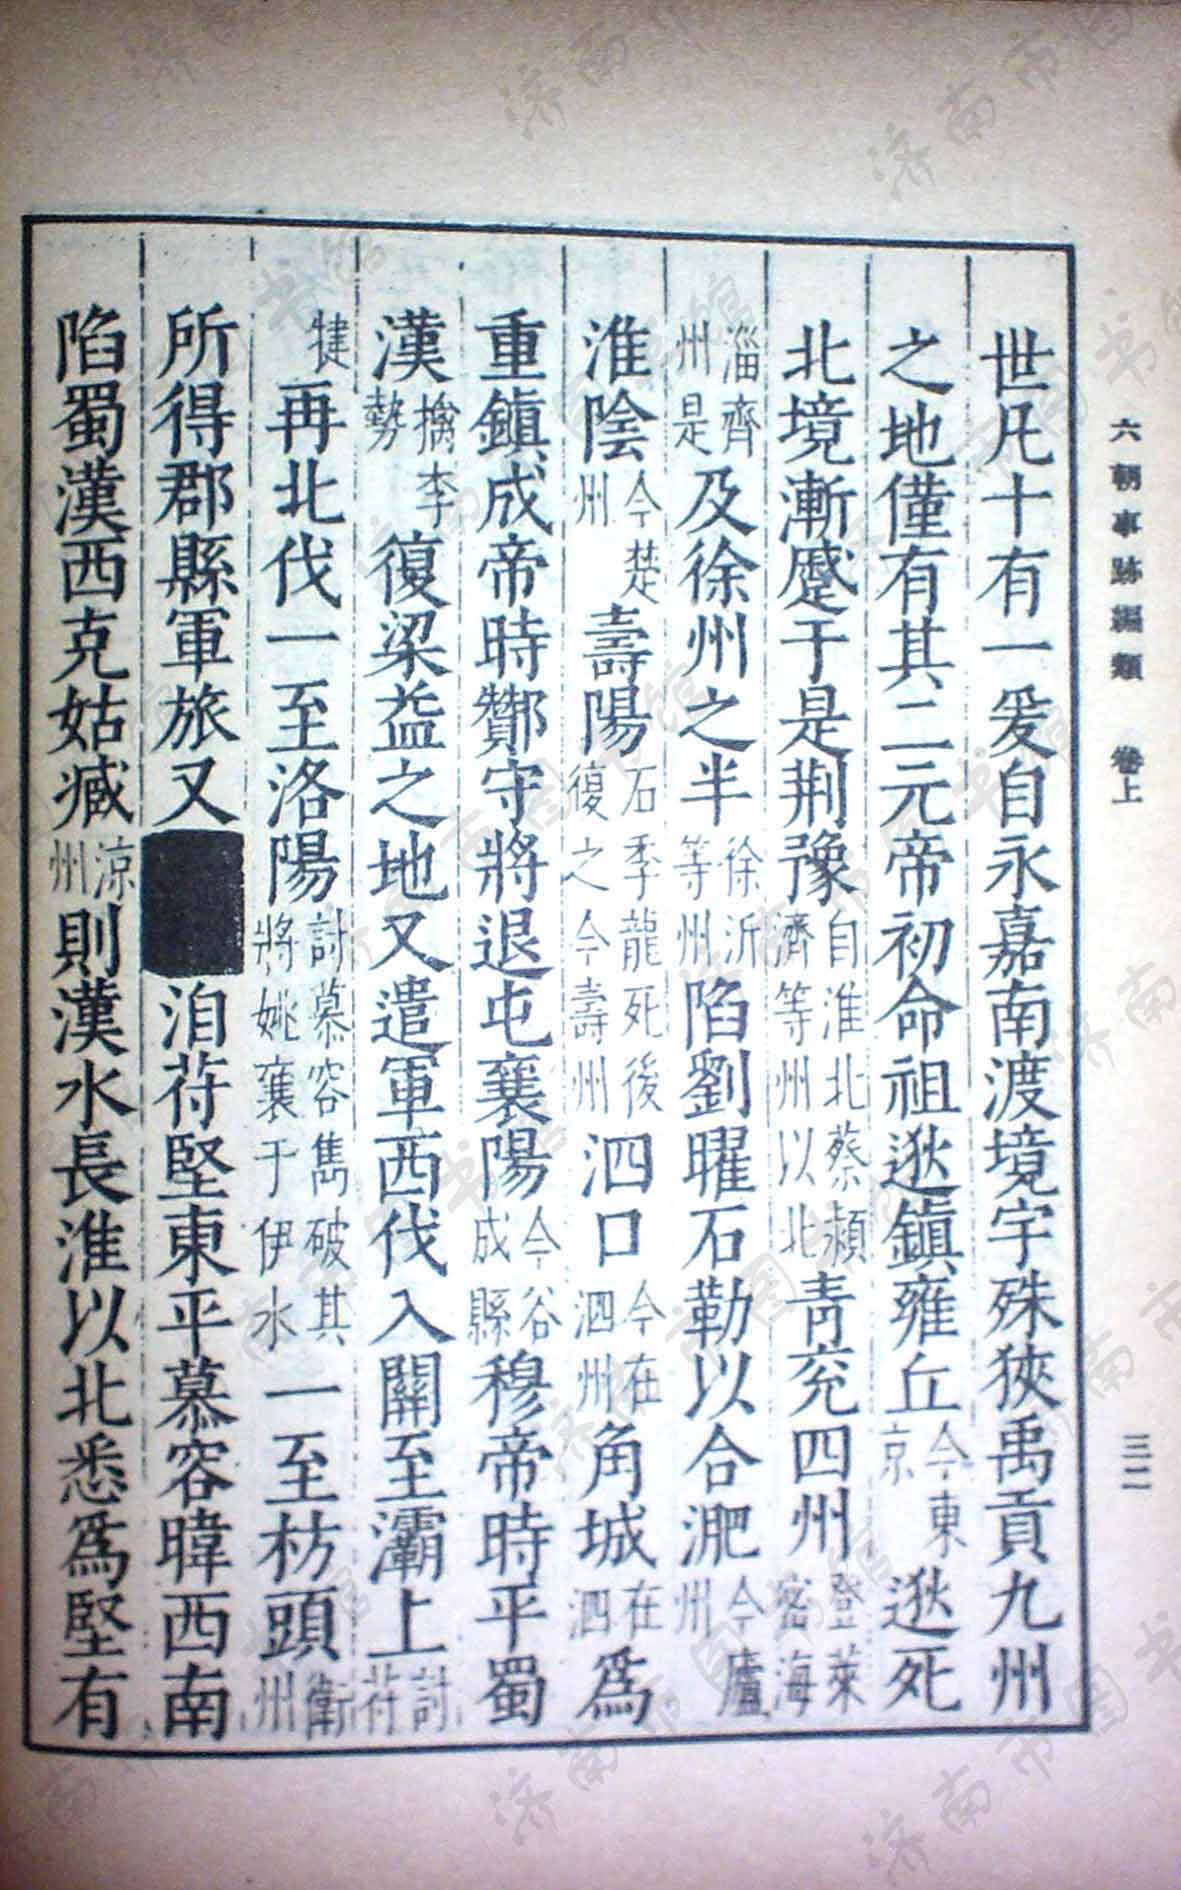 六朝事跡編類 卷上 三二
世凡十有一爰自永嘉南渡境宇殊狹禹貢九州
之地僅有其二元帝初命祖逖鎮雍丘今東京逖死
北境漸蹙于是荆豫自淮北蔡潁濟等州以北青兖四州登萊密海
淄齊州是及徐州之半徐沂等州陷劉曜石勒以合淝今廬州
淮陰今楚州壽陽石季龍死後復之今壽州泗口今在泗州角城在泗爲
重鎮成帝時酇守將退屯襄陽今谷成縣穆帝時平蜀
漢擒李勢復梁益之地又遣軍西伐入關至灞上討苻
犍再北伐一至洛陽討慕容雋破其將姚襄于伊水一至枋頭衛州
所得郡縣軍旅又洎苻堅東平慕容暐西南
陷蜀漢西克姑臧涼州則漢水長淮以北悉爲堅有
济南市图书馆